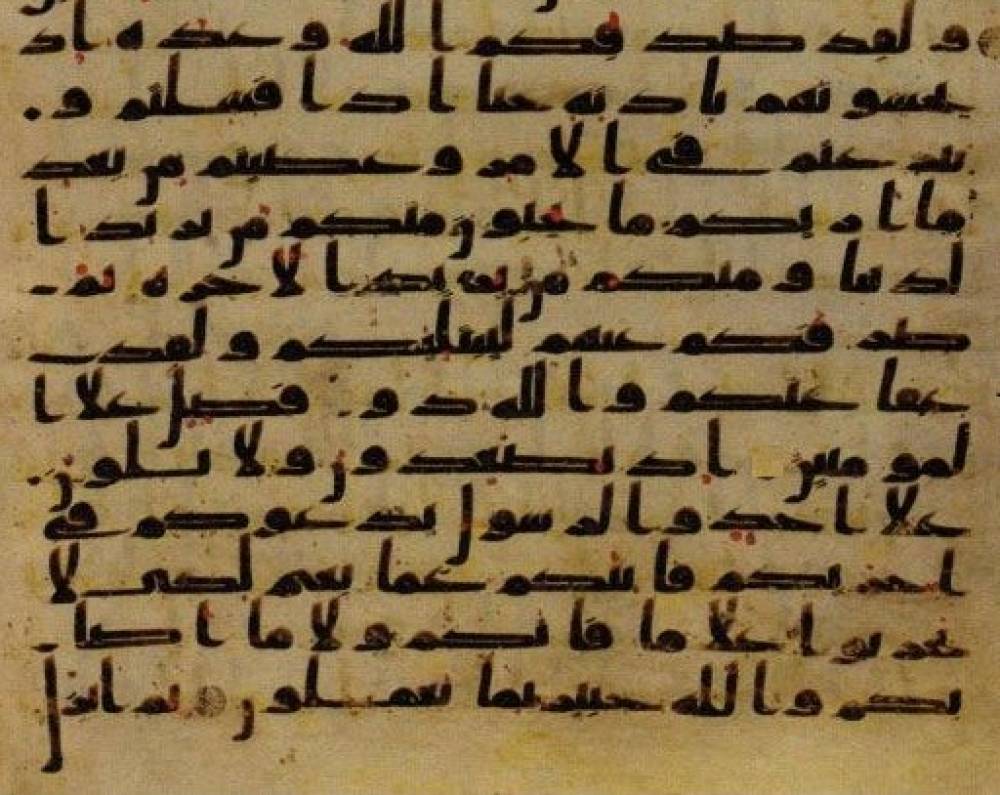 و لقد صدقكم الله وعده اذ
تحسونهم باذنه حتا اذا فشلتم و
تنزعتم في الامر وعصيتم من بعد
ما اريكم ما تحبون منكم من يريد ا
لدنيا ومنكم من يريد الاخره ثم
صرفكم عنهم ليبتليكم ولقد
عفا عنكم والله ذو فضل علا ا
لمومنين اذ تصعدون ولا تلون
علا احد والرسول يدعوكم في
اخريكم فاثبكم غما بغم لكي لا
تحزنوا علا ما فاتكم ولا ما اصا
بكم والله خبير بما تعملون ثم انزل